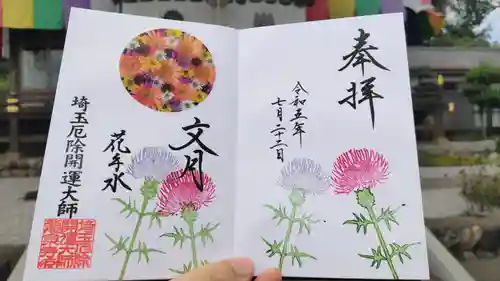 奉拝
令和五年
七月二十二日
文月
花手水
埼玉厄除開運大師